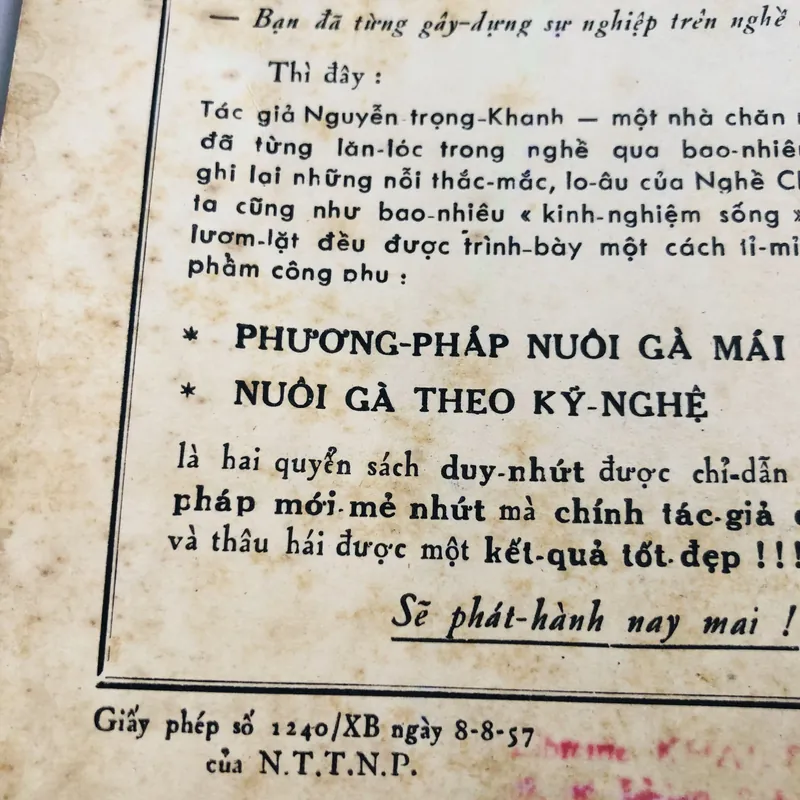 — Bạn đã từng gây-dựng sự nghiệp trên nghề
Thì đây :
Tác giả Nguyễn trọng-Khanh — một nhà chăn
đã từng lăn-lóc trong nghề qua bao-nhiêu
ghi lại những nỗi thắc-mắc, lo-âu của Nghề
ta cũng như bao-nhiêu « kinh-nghiệm sống »
lượm-lặt đều được trình-bày một cách tỉ-mỉ
phẩm công phu :
* PHƯƠNG-PHÁP NUÔI GÀ MÁI
* NUÔI GÀ THEO KỸ-NGHỆ
là hai quyển sách duy-nhứt được chỉ-dẫn
pháp mới-mẻ nhứt mà chính tác-giả
và thâu hái được một kết-quả tốt-đẹp !!!
Sẽ phát-hành nay mai !
Giấy phép số 1240/XB ngày 8-8-57
của N.T.T.N.P.